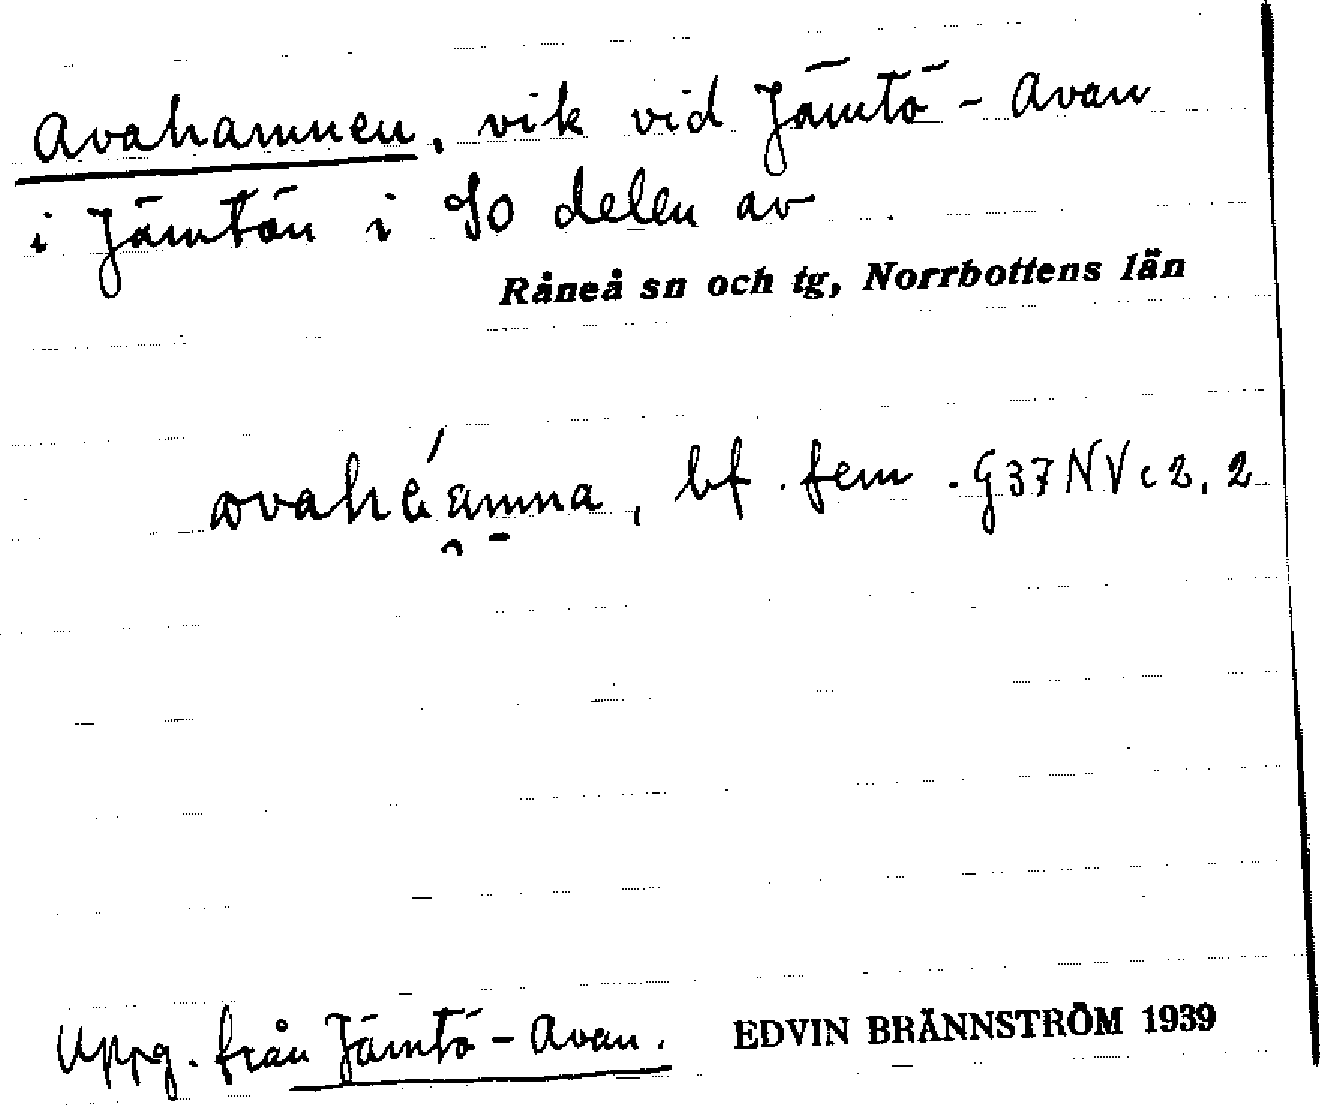 Avahamnen, vik vid Jämtö-Avan
i Jämtön i SO delen av
Råneå sn och tg, Norrbottens län
bf. fem. G37NVc2,2
Uppg. från Jämtö-Avan.
EDVIN BRÄNNSTRÖM 1939